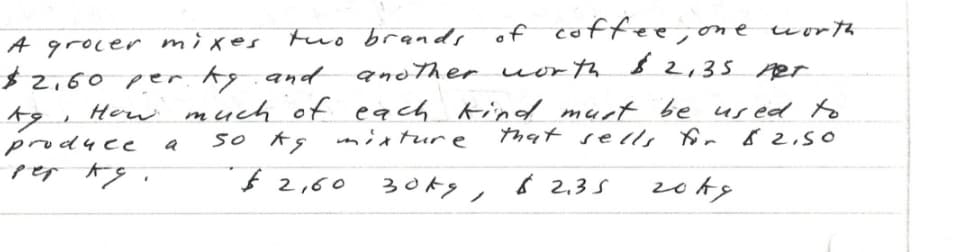 A grocer mixes two brands of coffee, one worth
$ 2,60 per kg and another worth $ 2,35 per
kg, How much of each kind must be used to
produce a 50 kg mixture that sells for $ 2,50
per kg. $ 2,60 30kg, $ 2,35 20 kg